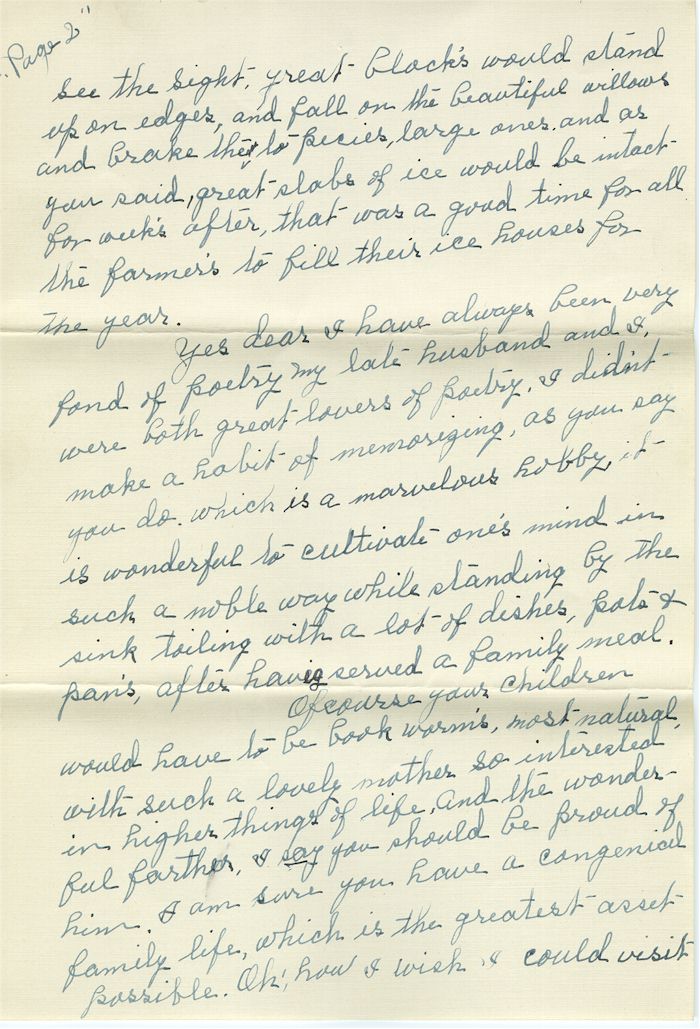 "Page 2"
see the sight, great block's would stand
up on edges, and fall on the beautiful willows
and brake the to pecies, large ones. and as
you said, great slabs of ice would be intact
for week's after, that was a good time for all
the farmer's to fill their ice houses for
the year.
Yes dear I have always been very
fond of poetry my late husband and I,
were both great lovers of poetry. I did'nt
make a habit of memorizing, as you say
you do. which is a marvelous hobby, it
is wonderful to cultivate one's mind in
such a noble way while standing by the
sink toiling with a lot of dishes, pots &
pan's, after having served a family meal.
Ofcourse your children
would have to be book worm's, most natural,
with such a lovely mother so interested
in higher things of life, And the wonder-
ful farther, I say you should be proud of
him. I am sure you have a congenial
family life, which is the greatest asset
possible. Oh, how I wish I could visit